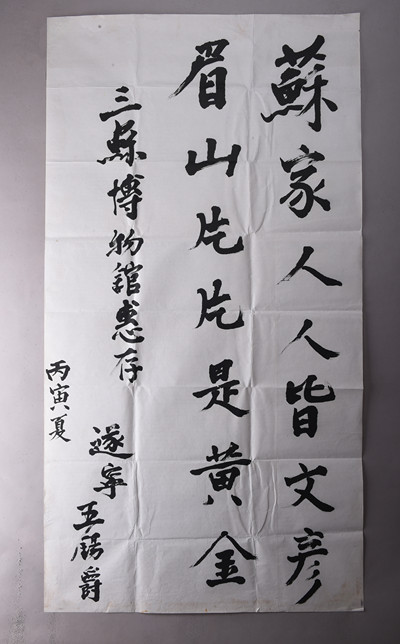 蘇家人人皆文彥
眉山片片是黃金
三蘇博物館惠存
遂寧
王爵
丙寅夏